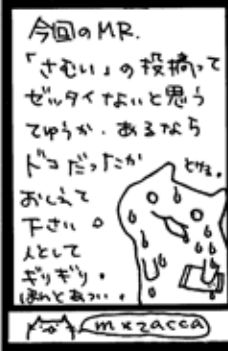 今回のMR.
「さむい」の投稿って
ゼッタイナょいと思う
てゆうか、あるなら
ドコだったか
おしえて
下さい。
人として
ギリギリ。
ほんとあつい。
とける。
mxzacca